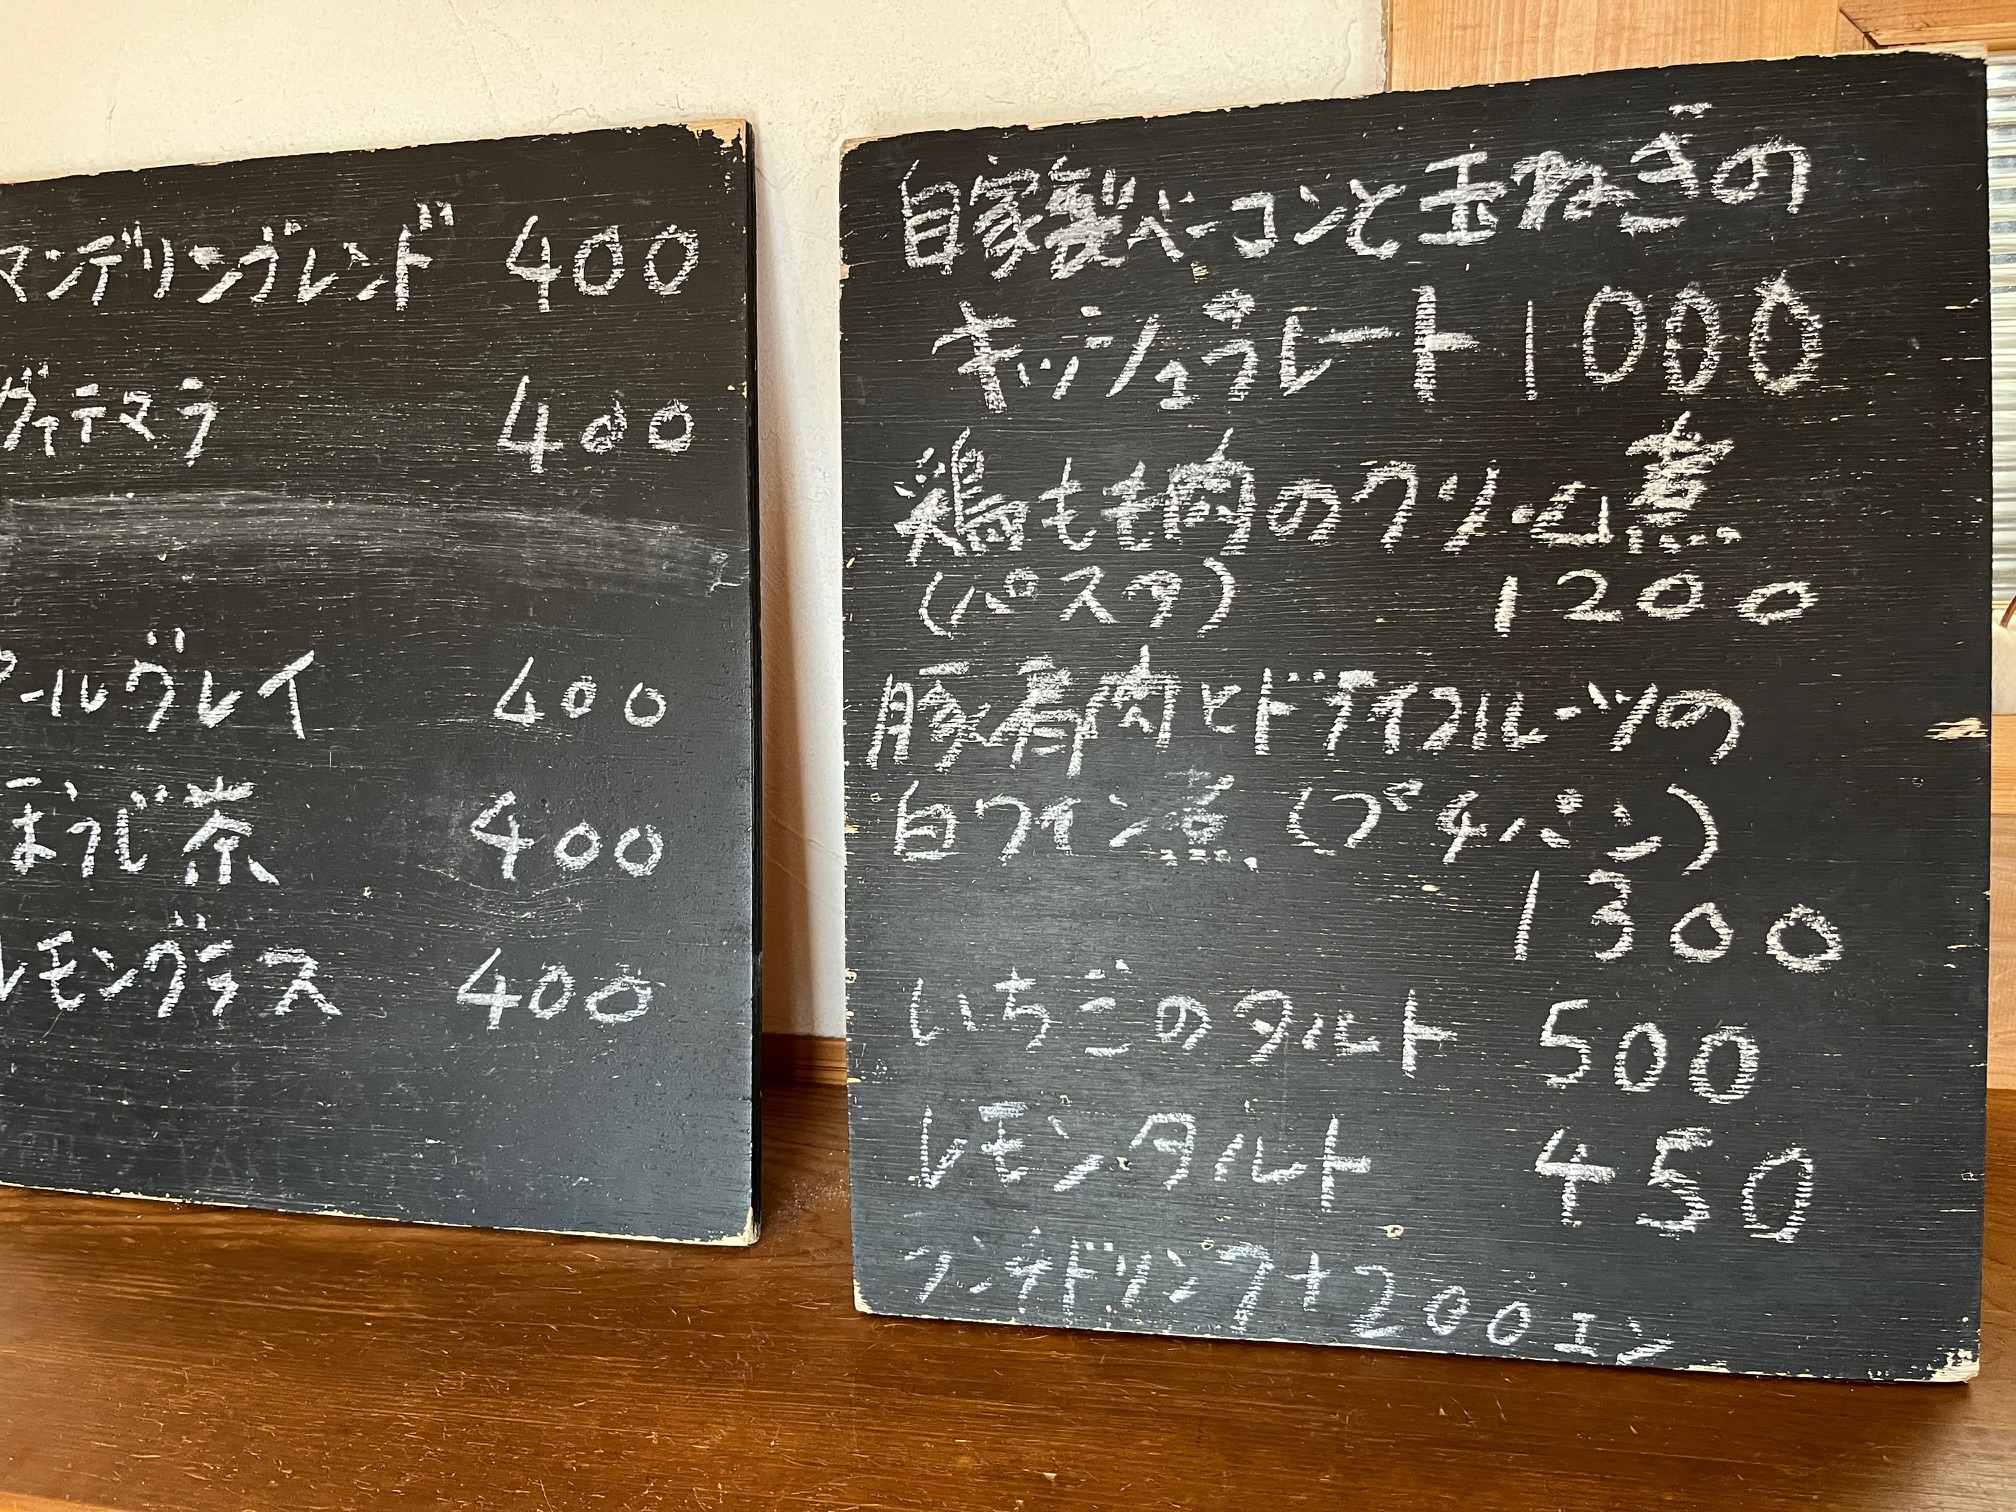 マンデリンブレンド 400
グァテマラ 400
アールグレイ 400
ほうじ茶 400
レモングラス 400
自家製ベーコンと玉ねぎの
キッシュプレート 1000
鶏もも肉のクリーム煮
(パスタ) 1200
豚肩肉とドライフルーツの
白ワイン煮 (プチパン)
1300
いちごのタルト 500
レモンタルト 450
ランチドリンク+200エン